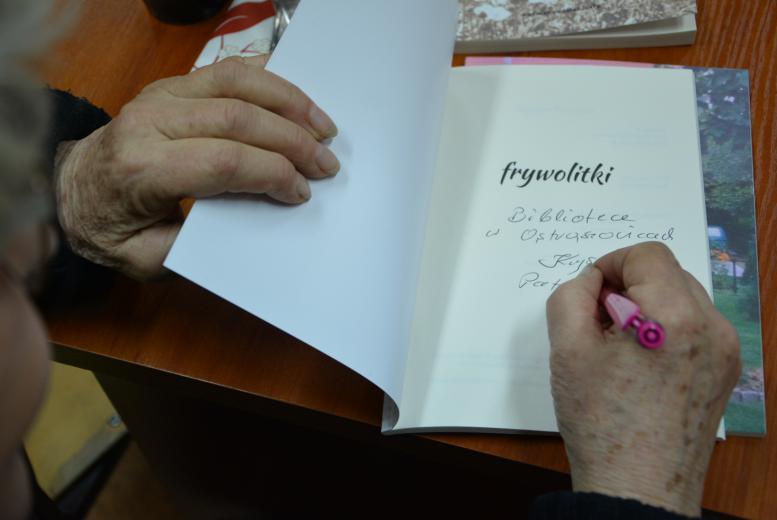 frywolitki
Bibliotece
w Ostroszowicach
Krys
Pat